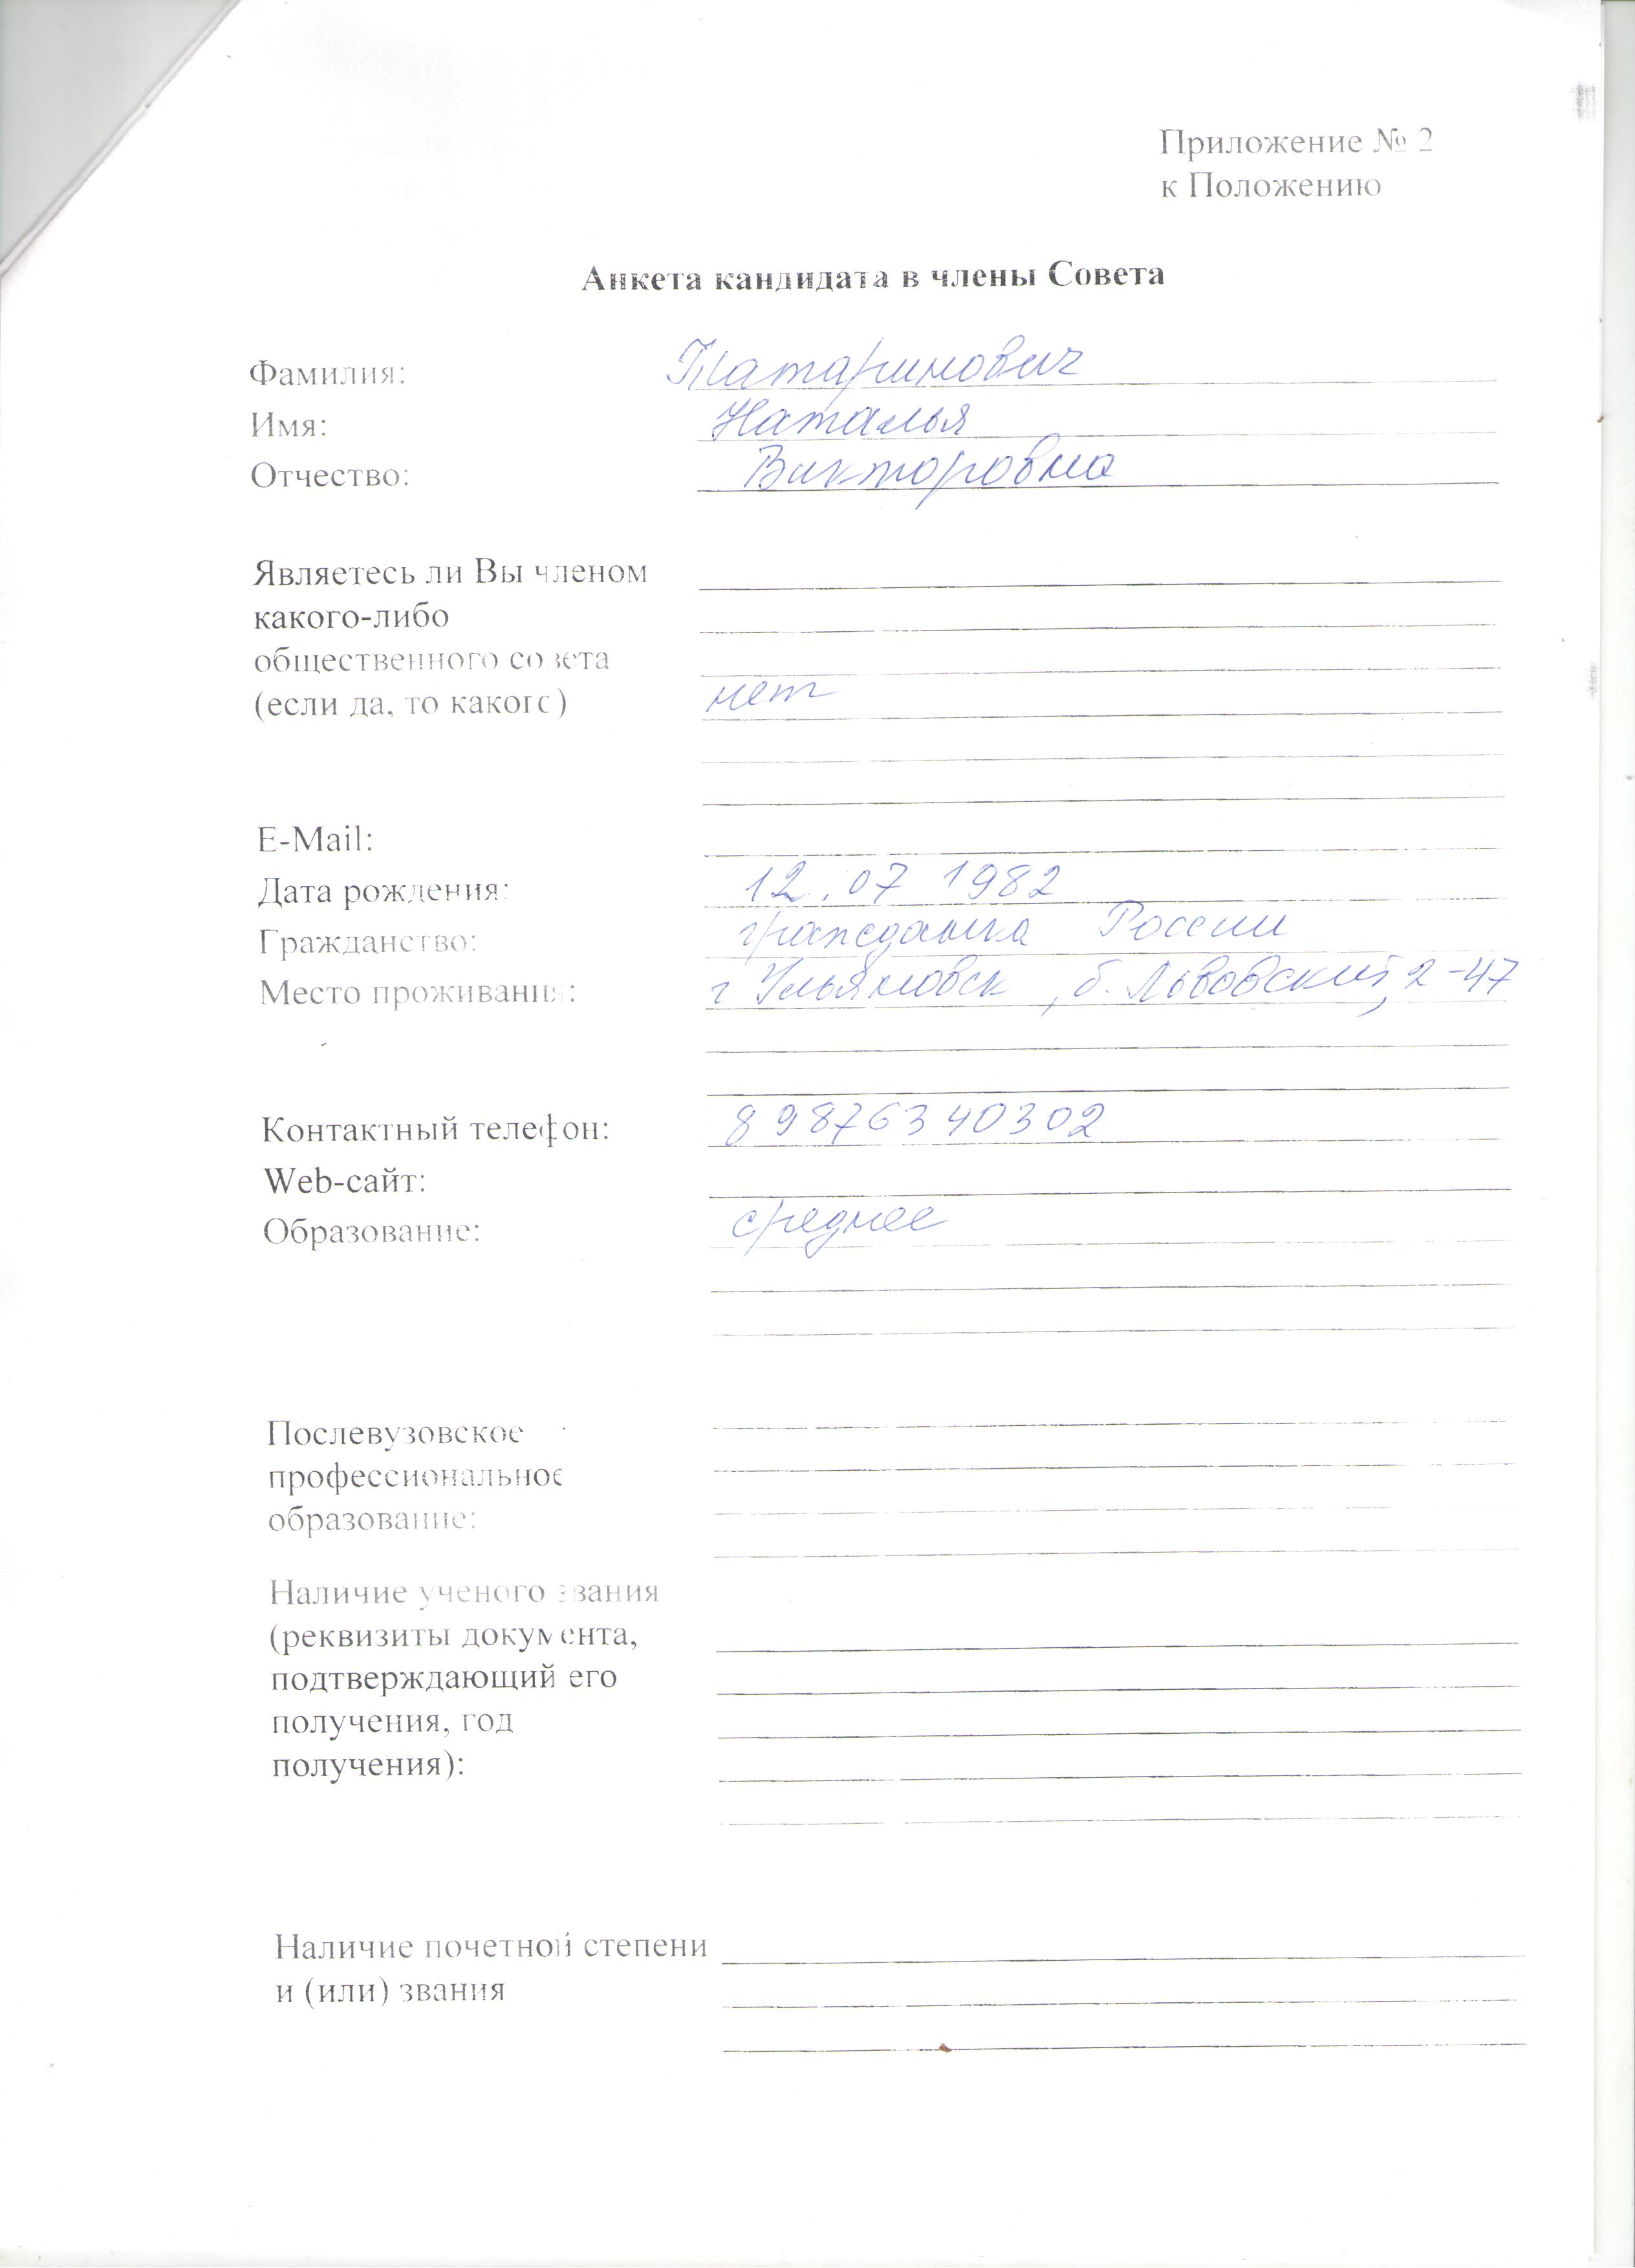 Приложение № 2
к Положению
Анкета кандидата в члены Совета
Фамилия: Татаринович
Имя: Наталья
Отчество: Викторовна
Являетесь ли Вы членом
какого-либо
общественного совета
(если да, то какого) нет
E-Mail:
Дата рождения: 12.07 1982
Гражданство: гражданка России
Место проживания: г Ульяновск, б. Львовский, 2-47
Контактный телефон: 89876340302
Web-сайт:
Образование: среднее
Послевузовское
профессиональное
образование:
Наличие ученого звания
(реквизиты документа,
подтверждающий его
получения, год
получения):
Наличие почетной степени
и (или) звания